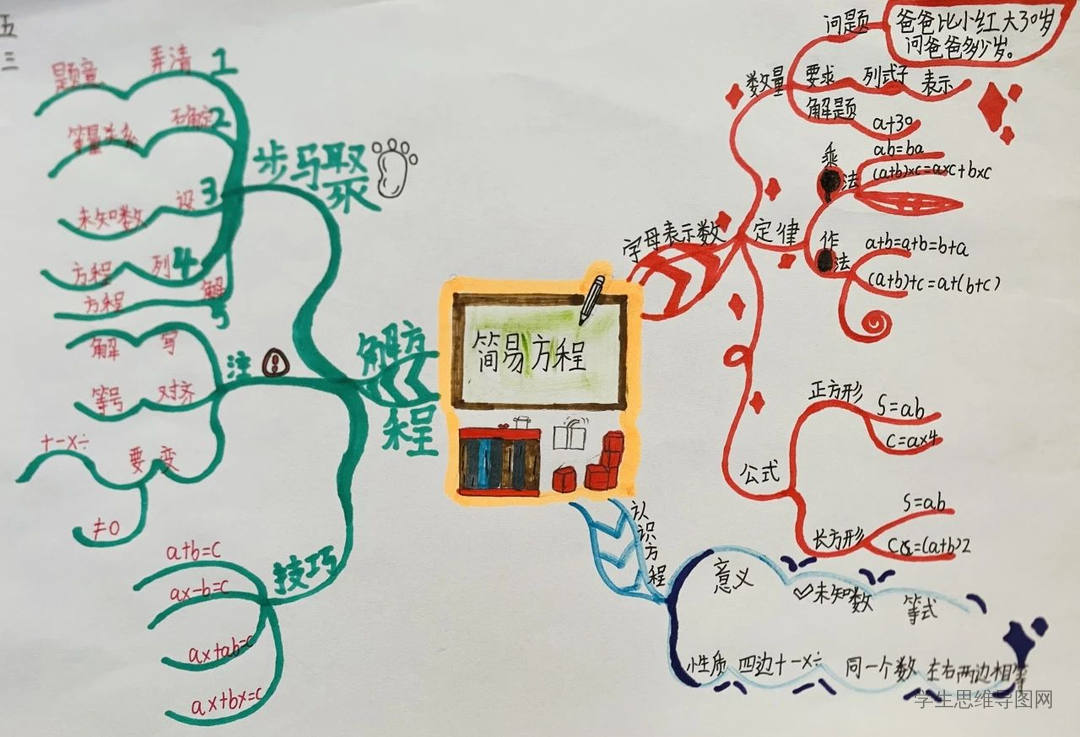 五
三
简易方程
字母表示数
数量
问题
爸爸比小红大30岁
问爸爸多少岁。
要求 列式子 表示
解题
a+30
定律
乘法
ab=ba
(a+b)×c=a×c+b×c
作法
a+b=a+b=b+a
(a+b)+c=a+(b+c)
公式
正方形
S=ab
C=a×4
长方形
S=ab
C=(a+b)2
认识方程
意义
未知数
等式
性质 四边+-×÷ 同一个数 左右两边相等
解方程
步马聚
弄清 1
题意
确定 2
等量关系
设 3
未知数
列 4
方程
解 5
方程
注
写
解
对齐
等号
要变
+-×÷
≠0
技巧
a+b=c
ax-b=c
ax+ab=c
ax+bx=c
学生思维导图网